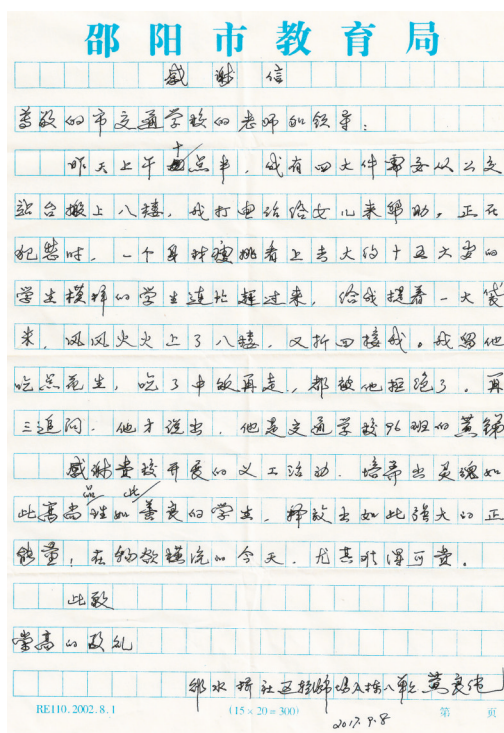 邵阳市教育局
感谢信
尊敬的市交通学校的老师和领导：
昨天上午十点半，我有四大件需要从公交
站台搬上八楼，我打电话给女儿来帮助，正在
犯愁时，一个身材瘦挑看上去大约十五六岁的
学生模样的学生连忙赶过来，给我提着一大袋
米，风风火火上了八楼，又折回接我。我留他
吃点花生，吃了中饭再走，都被他拒绝了。再
三追问，他才说出，他是交通学校96班的黄锦
感谢贵校开展的义工活动，培养出灵魂如
此高尚品性如此善良的学生，释放出如此强大的正
能量，在物欲横流的今天，尤其难得可贵。
此致
崇高的敬礼
邵水桥社区 八单元 黄良
2017.9.8
RE110.2002.8.1 (15×20=300) 第 页